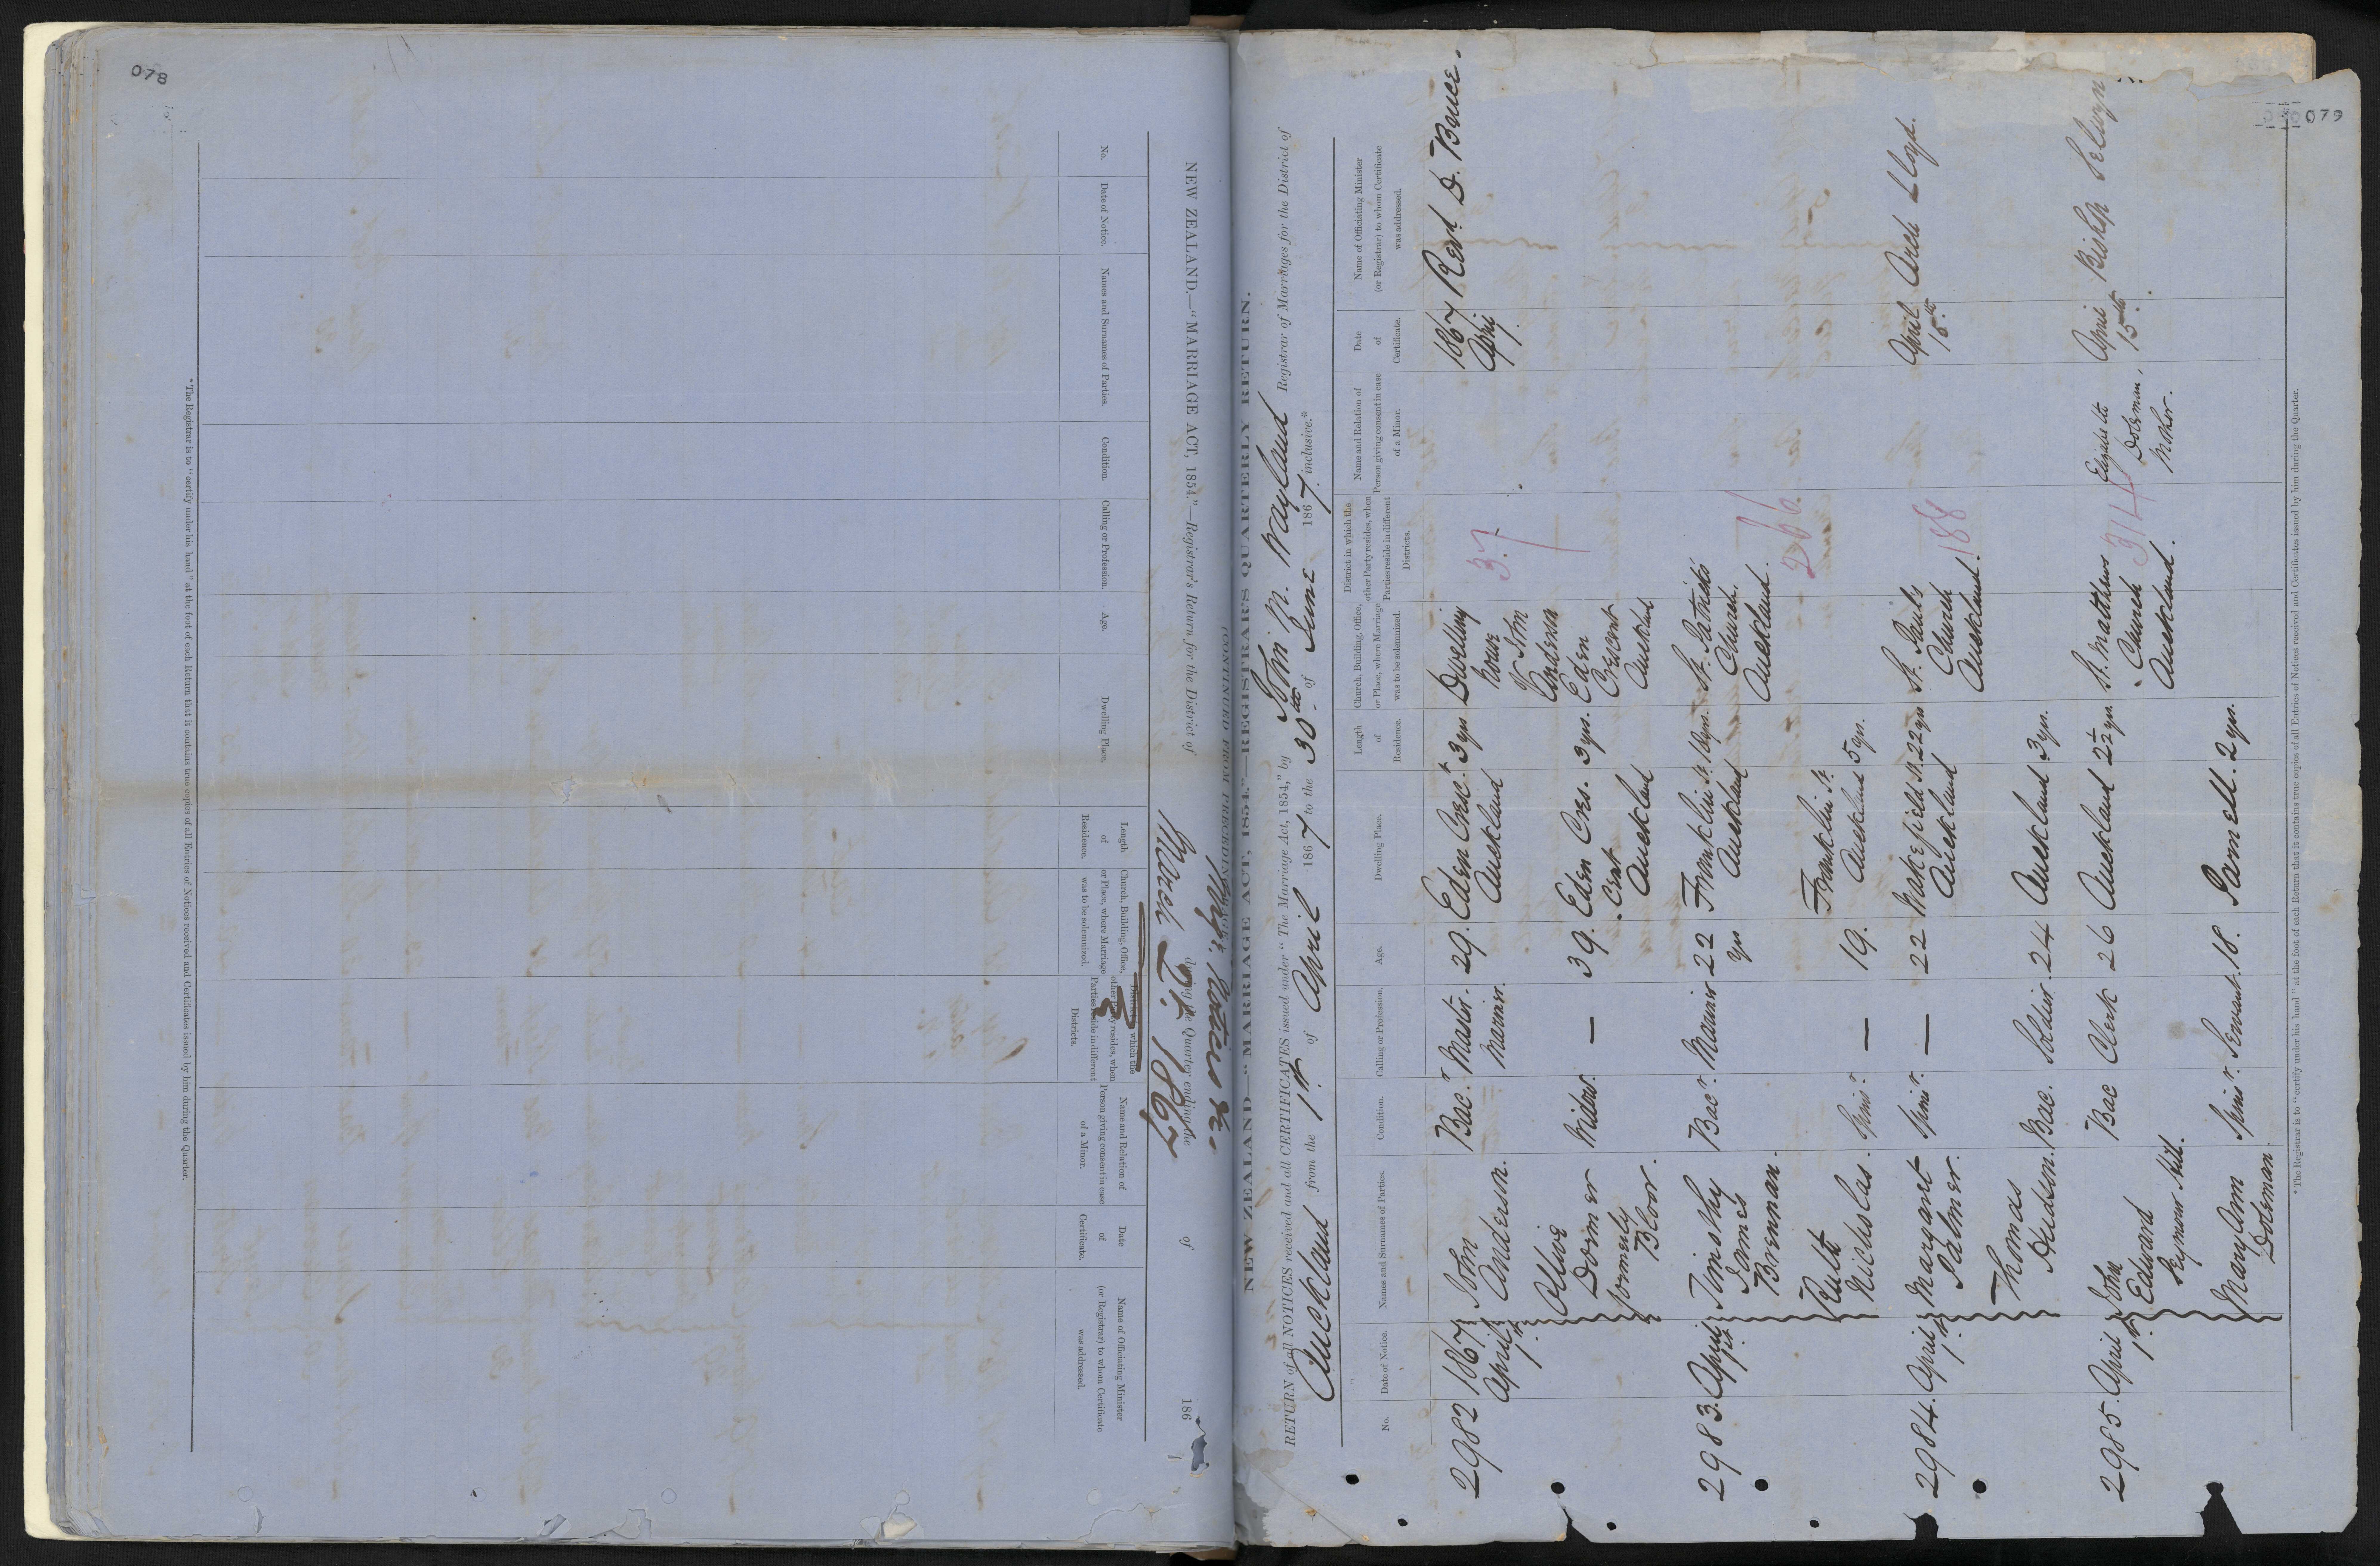 078
NEW ZEALAND.—"MARRIAGE ACT, 1854."—Registrar's Return for the District of
during the Quarter ending the
of
186
March Qr. 1867
No.
Date of Notice.
Names and Surnames of Parties.
Condition.
Calling or Profession.
Age.
Dwelling Place.
Length
of
Residence.
Church, Building, Office,
or Place, where Marriage
was to be solemnized.
District in which the
other Party resides, when
Parties reside in different
Districts.
Name and Relation of
Person giving consent in case
of a Minor.
Date
of
Certificate.
Name of Officiating Minister
(or Registrar) to whom Certificate
was addressed.
* The Registrar is to "certify under his hand" at the foot of each Return that it contains true copies of all Entries of Notices received and Certificates issued by him during the Quarter.
079
NEW ZEALAND—"MARRIAGE ACT, 1854."—REGISTRAR'S QUARTERLY RETURN.
RETURN of all NOTICES received and all CERTIFICATES issued under "The Marriage Act, 1854," by John B. Wayland Registrar of Marriages for the District of
Auckland from the 1st of April 1867 to the 30th of June 1867 inclusive.*
No.
Date of Notice.
Names and Surnames of Parties.
Condition.
Calling or Profession.
Age.
Dwelling Place.
Length
of
Residence.
Church, Building, Office,
or Place, where Marriage
was to be solemnized.
District in which the
other Party resides, when
Parties reside in different
Districts.
Name and Relation of
Person giving consent in case
of a Minor.
Date
of
Certificate.
Name of Officiating Minister
(or Registrar) to whom Certificate
was addressed.
2982 1867 John Bacr. Master 29. Eden Crest. 3 yrs Dwelling 1867 Revd. D. Bruce.
April 1st Anderson. Mariner. Auckland house 37 April 1.
J John
Ollive Widow. — 39. Eden Cres. 3 yrs. Anderson
Dormer cent Eden
formerly Auckland Crescent
Bloor. Auckland
2983. April Timothy Bacr. Mariner 22 Franklin St. 10 yrs. St. Patricks
1st James yrs Auckland Church.
Brennan. Auckland.
Ruth Spinr. — 19. Franklin St. 5 yrs. 266
Nicholas. Auckland
2984. April Margaret Spinr. — 22 Wakefield St. 22 yrs St. Pauls April Arch Lloyd.
1st Palmer. Auckland Church 188 15th
Auckland.
Thomas Bac. Soldier. 24 Auckland 3 yrs.
Hudson.
2985. April John Bac Clerk 26 Auckland 2½ yrs. St. Matthews Elizabeth April Bishop Selwyn
1st Edward Church 314 Doleman, 15th
Seymour Hill. Auckland. Mother.
Mary Ann Spinr. Servant. 18. Parnell. 2 yrs.
Doleman.
* The Registrar is to "certify under his hand" at the foot of each Return that it contains true copies of all Entries of Notices received and Certificates issued by him during the Quarter.